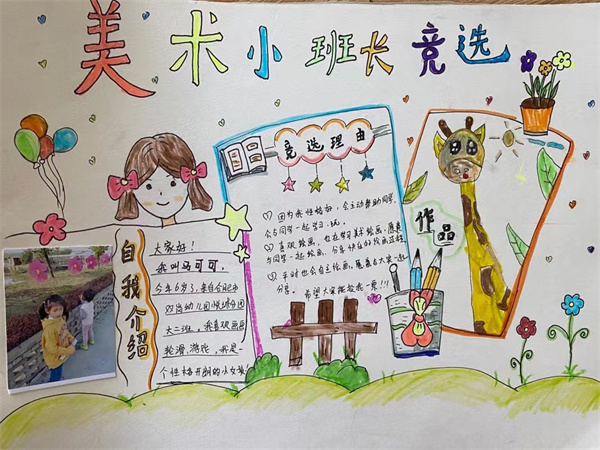 美术小班长竞选
竞选理由
① 因为我性格好，会主动帮助同学，
会与同学一起学习、玩。
② 喜欢绘画，也在学习美术绘画，愿意
与同学一起绘画，分享快乐的绘画过程
③ 平时也会自主绘画，愿意与大家一起
分享。 希望大家能投我一票!!!
作品
自我介绍
大家好！
我叫马可可，
今年6岁了，来自合肥市
双岗幼儿园
大二班，我喜欢画画
轮滑、游泳，我是一
个性格开朗的小女孩！